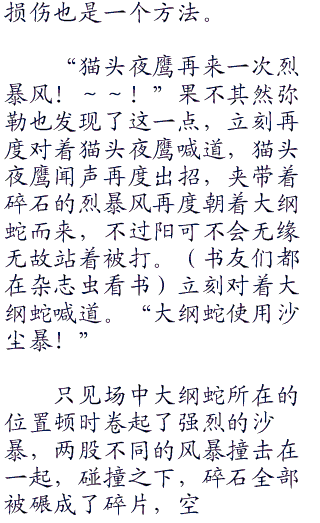 损伤也是一个方法。
“猫头夜鹰再来一次烈
暴风！～～！”果不其然弥
勒也发现了这一点，立刻再
度对着猫头夜鹰喊道，猫头
夜鹰闻声再度出招，夹带着
碎石的烈暴风再度朝着大纲
蛇而来，不过阳可不会无缘
无故站着被打。（书友们都
在杂志虫看书）立刻对着大
纲蛇喊道。“大纲蛇使用沙
尘暴！”
只见场中大纲蛇所在的
位置顿时卷起了强烈的沙
暴，两股不同的风暴撞击在
一起，碰撞之下，碎石全部
被碾成了碎片，空